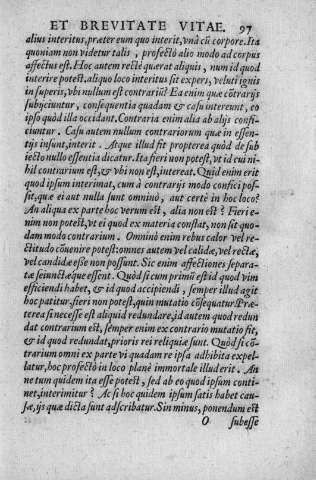 ET BREVITATE VITAE. 97
alius interitus, præter eum quo interit, vnà cũ corpore. Ita
quoniam non videtur talis, profectò alio modo ad corpus
affectus est. Hoc autem rectè quærat aliquis, num id quod
interire potest, aliquo loco interitus sit expers, veluti ignis
in superis, vbi nullum est contrariũ? Ea enim quæ cõtrarijs
subijciuntur, consequentia quadam & casu intereunt, eo
ipso quòd illa occidant. Contraria enim alia ab alijs confi-
ciuntur. Casu autem nullum contrariorum quæ in essen-
tijs insunt, interit. Atque illud fit propterea quòd de sub
iecto nullo essentia dicatur. Ita fieri non potest, vt id cui ni-
hil contrarium est, & vbi non est, intereat. Quid enim erit
quod ipsum interimat, cum à contrarijs modo confici pos-
sit, quæ ei aut nulla sunt omninò, aut certè in hoc loco?
An aliqua ex parte hoc verum est, alia non est? Fieri e-
nim non potest, vt ei quod ex materia constat, non sit quo-
dam modo contrarium. Omninò enim rebus calor vel re-
ctitudo cõuenire potest: omnes autem vel calidæ, vel rectæ,
vel candidæ esse non possunt. Sic enim affectiones separa-
tæ seiunctæque essent. Quòd si cum primũ est id quod vim
efficiendi habet, & id quod accipiendi, semper illud agit
hoc patitur, fieri non potest, quin mutatio cõsequatur. Præ-
terea si necesse est aliquid redundare, id autem quod redun
dat contrarium est, semper enim ex contrario mutatio fit,
& id quod redundat, prioris rei reliquiæ sunt. Quòd si cõ-
trarium omni ex parte vi quadam re ipsa adhibita expel-
latur, hoc profectò in loco planè immortale illud erit. An
ne tum quidem ita esse potest, sed ab eo quod ipsum conti-
net, interimitur? Ac si hoc quidem ipsum satis habet cau-
sæ, ijs quæ dicta sunt adscribatur. Sin minus, ponendum est
O subesse